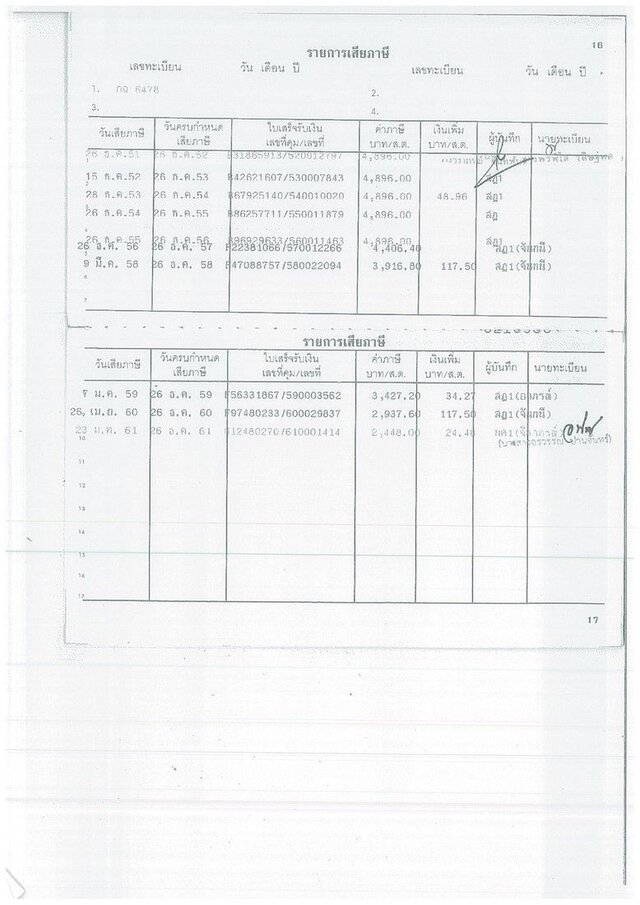 16
รายการเสียภาษี
เลขทะเบียน วัน เดือน ปี เลขทะเบียน วัน เดือน ปี
1. กฉ 6478 2.
3. 4.
วันเสียภาษี วันครบกำหนดเสียภาษี ใบเสร็จรับเงิน เลขที่คุม/เลขที่ ค่าภาษี บาท/ส.ต. เงินเพิ่ม บาท/ส.ต. ผู้บันทึก นายทะเบียน
26 ธ.ค.51 26 ธ.ค.52 B31865913/520012797 4,896.00
15 ธ.ค.52 26 ธ.ค.53 B42621607/530007843 4,896.00 สฎ1
28 ธ.ค.53 26 ธ.ค.54 B67925140/540010020 4,896.00 48.96 สฎ1
26 ธ.ค.54 26 ธ.ค.55 B86257711/550011879 4,896.00 สฎ
26 ธ.ค.55 26 ธ.ค.56 B96929633/560011463 4,896.00 สฎ1
26 ธ.ค. 56 26 ธ.ค. 57 F22381066/570012266 4,406.40 สฎ1(จันทนี)
9 มี.ค. 58 26 ธ.ค. 58 F47088757/580022094 3,916.80 117.50 สฎ1(จันทนี)
7
รายการเสียภาษี
วันเสียภาษี วันครบกำหนดเสียภาษี ใบเสร็จรับเงิน เลขที่คุม/เลขที่ ค่าภาษี บาท/ส.ต. เงินเพิ่ม บาท/ส.ต. ผู้บันทึก นายทะเบียน
ม.ค. 59 26 ธ.ค. 59 F56331867/590003562 3,427.20 34.27
25 เม.ย. 60 26 ธ.ค. 60 F97480233/600029837 2,937.60 117.50 สฎ1(จันทนี)
23 ม.ค. 61 26 ธ.ค. 61 F12480270/610001414 2,448.00 24.48
10
11
12
13
14
15
16
17
17